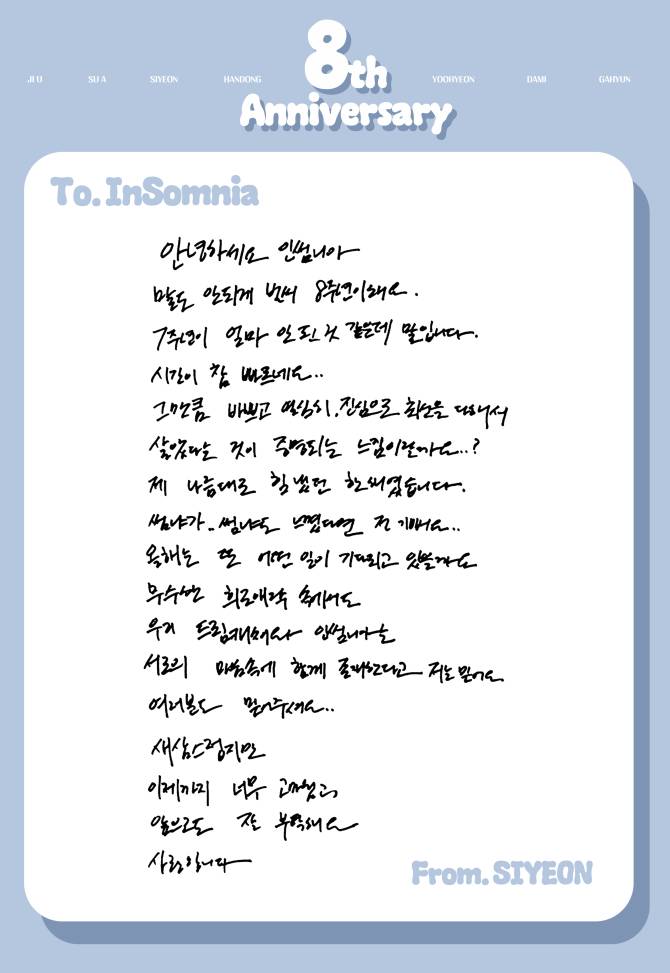 8th
JI U SU A SIYEON HANDONG YOOHYEON DAMI GAHYUN
Anniversary
To. InSomnia
안녕하세요 인썸니아
말도 안되게 벌써 8주년이래요.
7주년이 얼마 안 된 것 같은데 말입니다.
시간이 참 빠르네요..
그만큼 바쁘고 열심히, 진심으로 최선을 다해서
살았다는 것이 증명되는 느낌이랄까요..?
제 나름대로 힘냈던 한 해였습니다.
썸냐가.. 썸냐도 느꼈다면 전 기뻐요..
올해는 또 어떤 일이 기다리고 있을까요
무수한 희로애락 속에서도
우리 드림캐쳐와 인썸니아는
서로의 마음속에 함께 존재한다고 저는 믿어요
여러분도 믿어주세요..
새삼스럽지만
이제까지 너무 고마웠고,
앞으로도 잘 부탁해요
사랑합니다
From. SIYEON